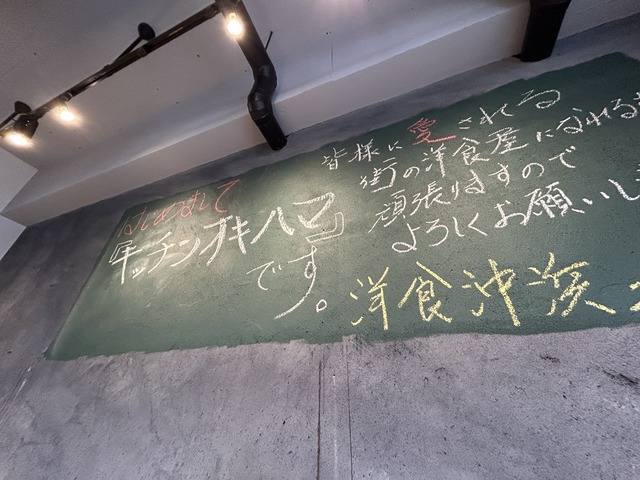 はじめまして
『キッチンオキハマ』
です。
皆様に愛される
街の洋食屋になれる
頑張りますので
よろしくお願いし
洋食沖浜